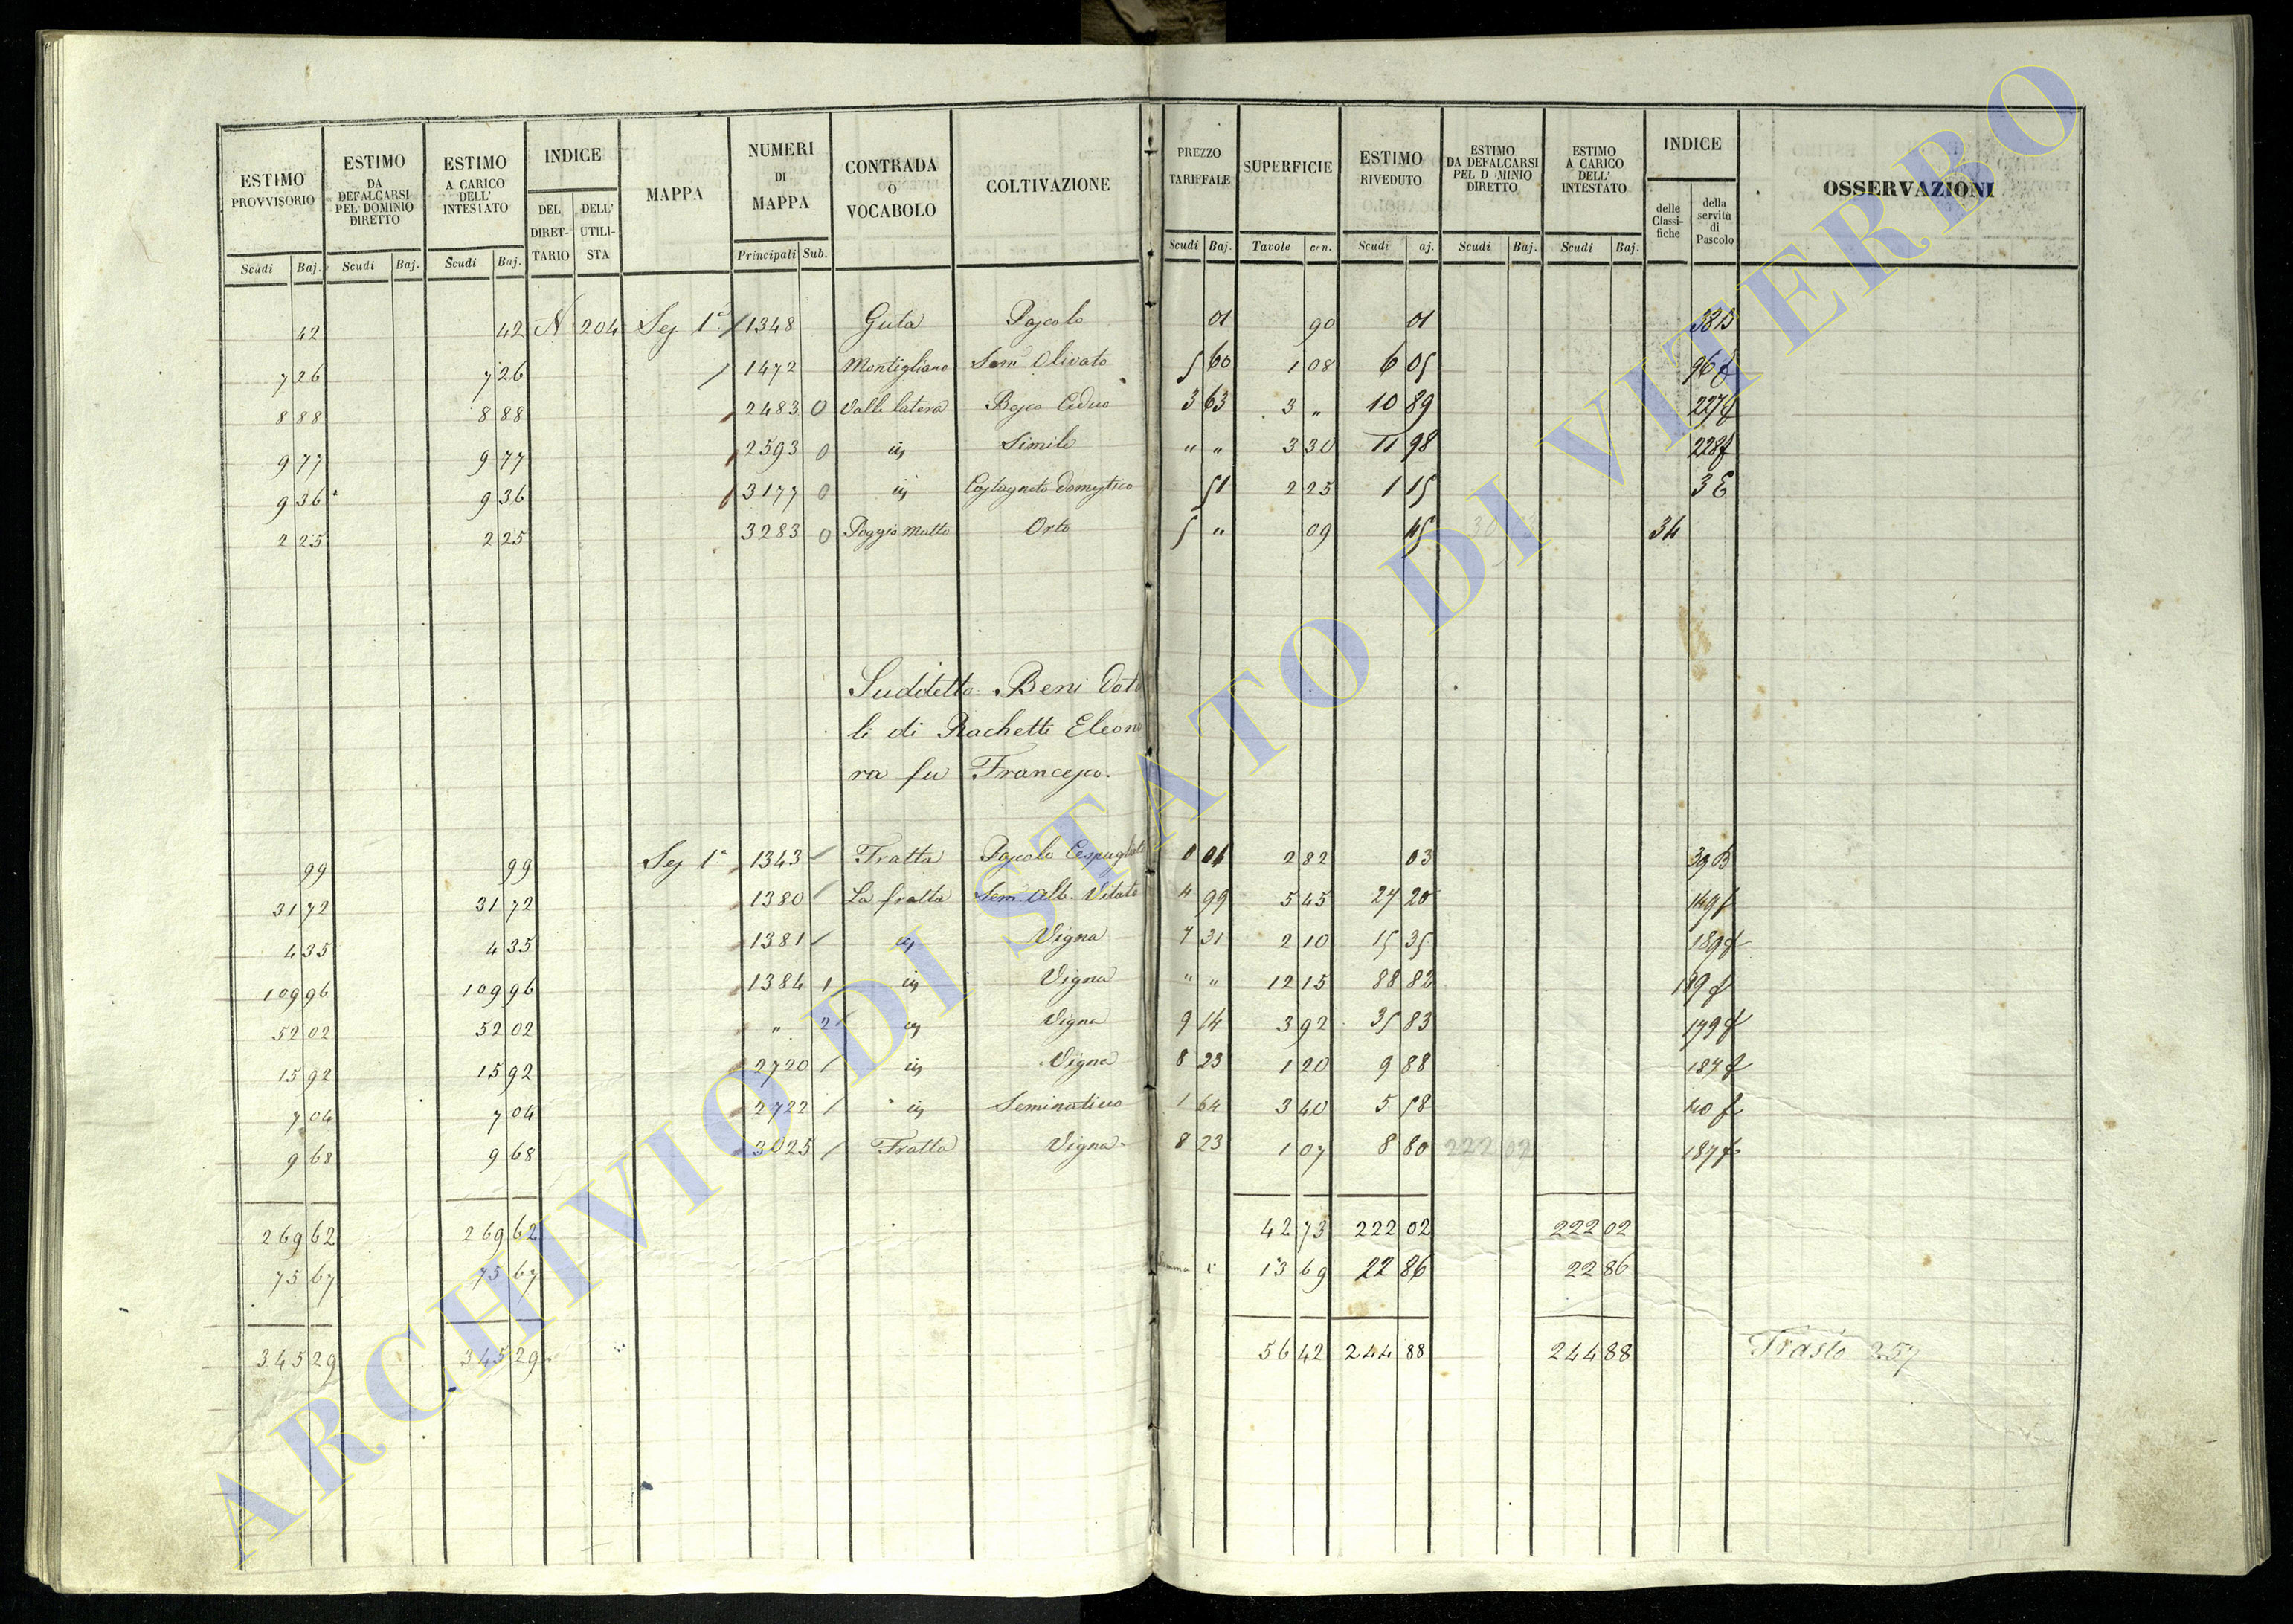 ESTIMO PROVVISORIO Scudi Baj. | ESTIMO DA DEFALCARSI PEL DOMINIO DIRETTO Scudi Baj. | ESTIMO A CARICO DELL' INTESTATO Scudi Baj. | INDICE DEL DIRETTARIO DELL' UTILISTA | MAPPA | NUMERI DI MAPPA Principali Sub. | CONTRADA O VOCABOLO | COLTIVAZIONE | PREZZO TARIFFALE Scudi Baj. | SUPERFICIE Tavole cen. | ESTIMO RIVEDUTO Scudi aj. | ESTIMO DA DEFALCARSI PEL D MINIO DIRETTO Scudi Baj. | ESTIMO A CARICO DELL' INTESTATO Scudi Baj. | INDICE delle Classifiche della servitù di Pascolo | OSSERVAZIONI
42 42 N 204 Sez 1ª 1348 Guta Pascolo 01 90 01 38 B
7 26 7 26 1472 Montigliano Sem Olivato 5 60 1 08 6 05 96 f
8 88 8 88 2483 0 Valle latera Bosco Ceduo 3 63 3 " 10 89 227 f
9 77 9 77 2593 0 in Simile " " 3 30 11 98 228 f
9 36 9 36 3177 0 in Castagneto Domestico 51 2 25 1 15 3 E
2 25 2 25 3283 0 Poggio Matto Orto 5 " 09 45 34
Sudditto Beni Dota
li di Rachetti Eleono
ra fu Francesco.
99 99 Sez 1ª 1343 Fratta Pascolo Cespugliato 0 01 2 82 03 39 B
31 72 31 72 1380 La fratta Sem Alb. Vitato 4 99 5 45 27 20 149 f
4 35 4 35 1381 in Vigna 7 31 2 10 15 35 189 f
109 96 109 96 1384 1 in Vigna " " 12 15 88 82 189 f
52 02 52 02 " 2 in Vigna 9 14 3 92 35 83 179 f
15 92 15 92 2720 in Vigna 8 23 1 20 9 88 187 f
7 04 7 04 2722 in Seminativo 1 64 3 40 5 58 40 f
9 68 9 68 3025 Fratta Vigna 8 23 1 07 8 80 222 02 187 f
269 62 269 62 42 73 222 02 222 02
75 67 75 67 Somma 13 69 22 86 22 86
345 29 345 29 56 42 244 88 244 88 Trasto 257
ARCHIVIO DI STATO DI VITERBO